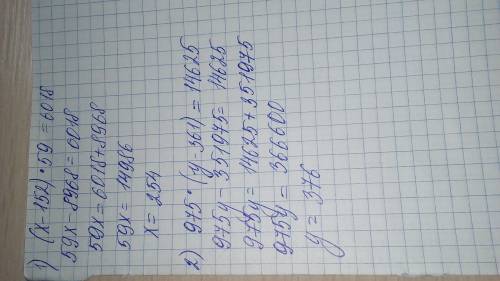 1) (x-152)·59=6018
59x-8968=6018
59x=6018+8968
59x=14986
x=254
2) 975·(y-361)=14625
975y-351975=14625
975y=14625+351975
975y=366600
y=376